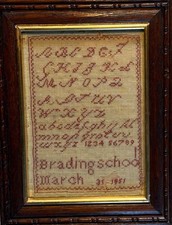 A B C D E F
G H I J K L
M N O P Q
R S T U V
W X Y Z
a b c d e f g h i j k l
m n o p q r s t u v
w x y z 1 2 3 4 5 6 7 8 9
Brading school
March 31